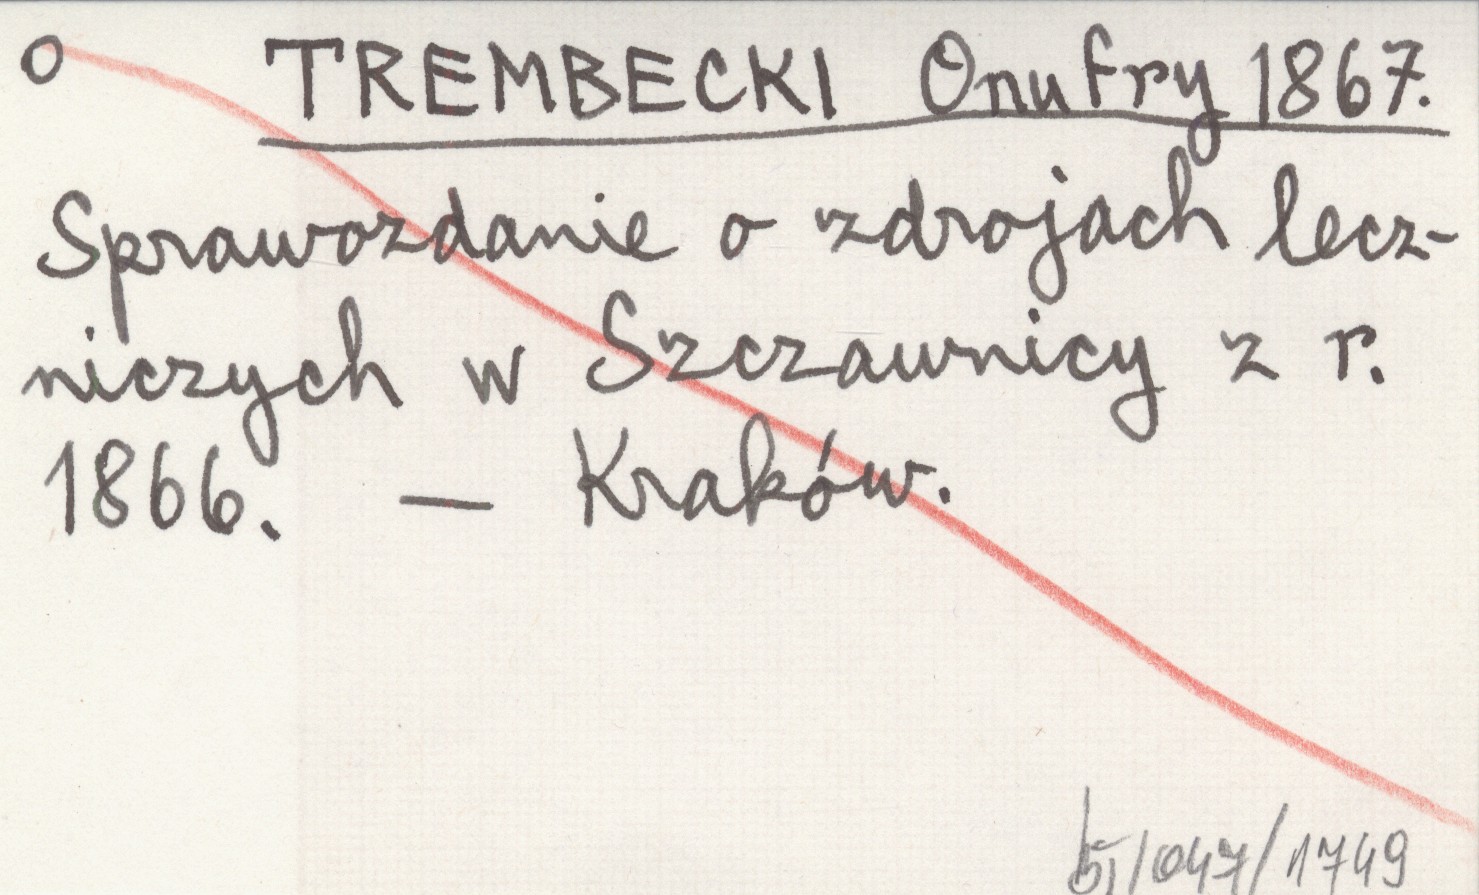 o TREMBECKI Onufry 1867.
Sprawozdanie o zdrojach lecz-
niczych w Szczawnicy z r.
1866. — Kraków.
/047/1749